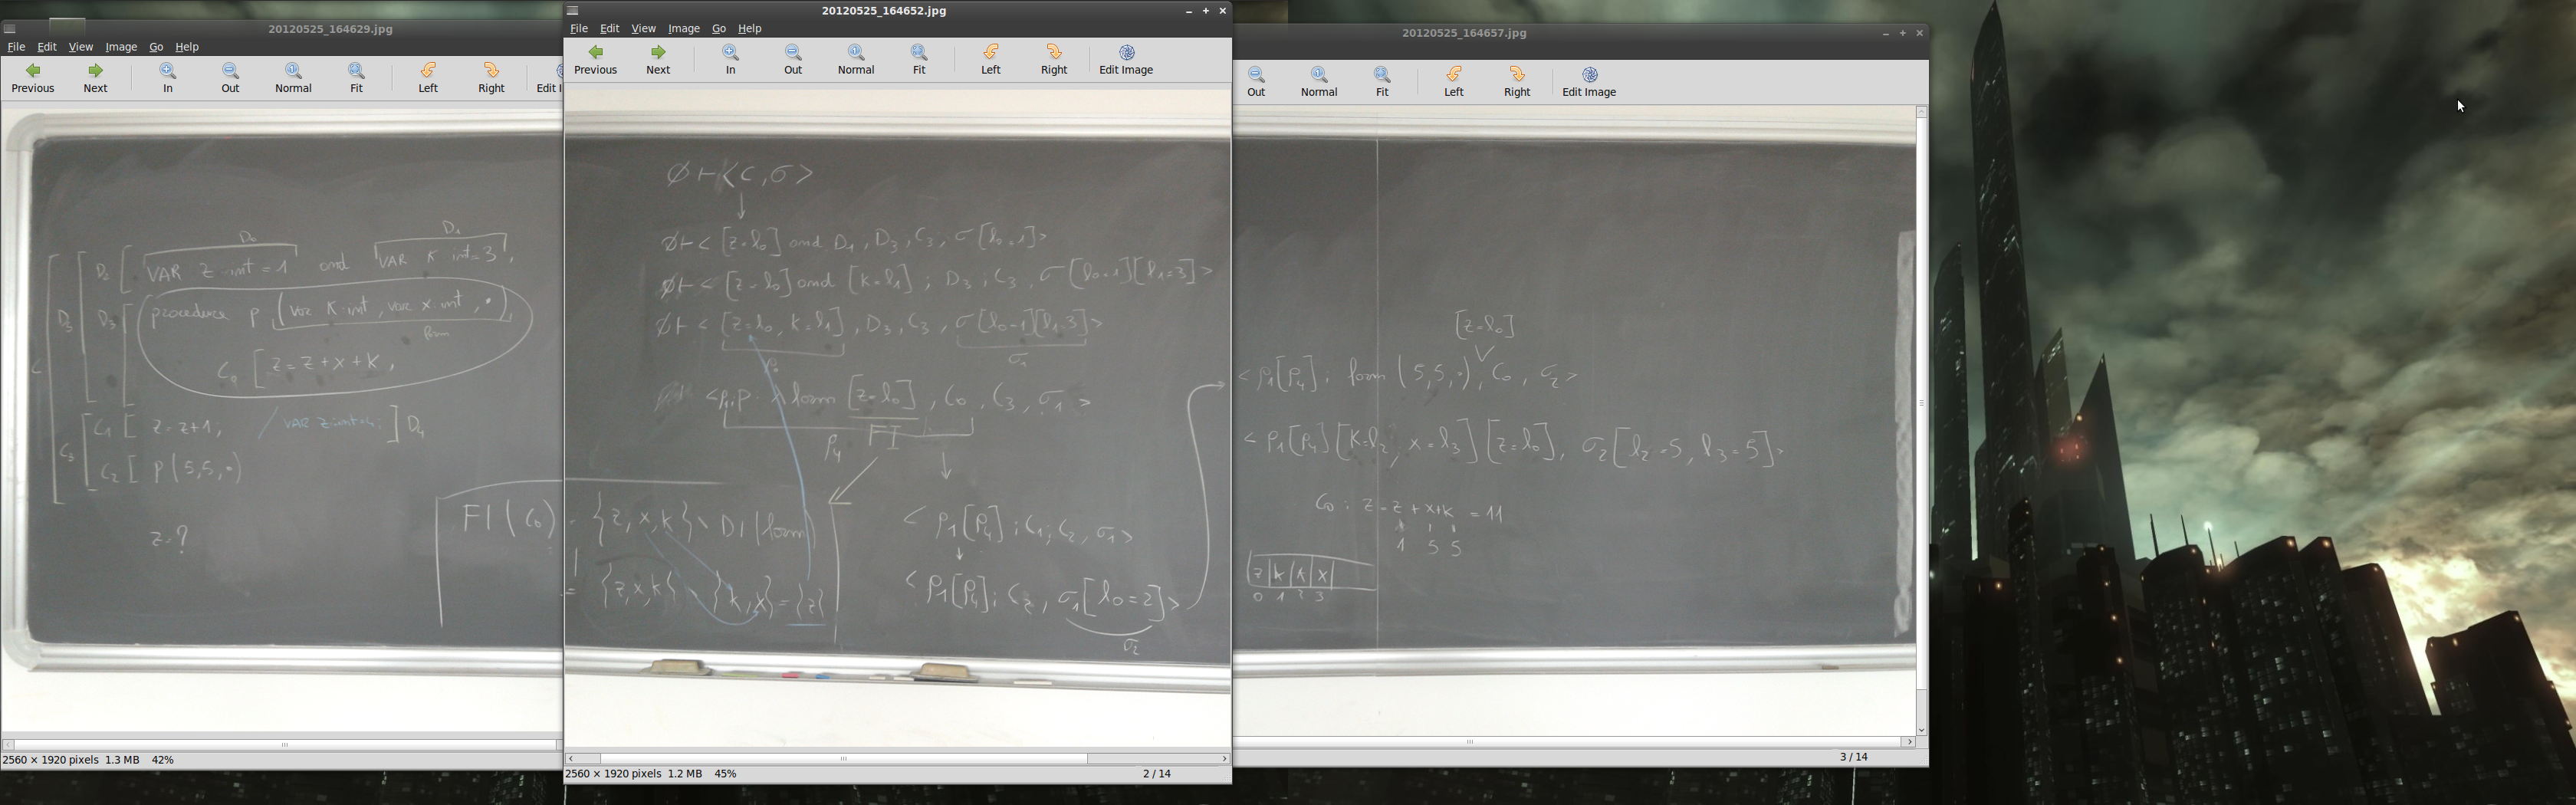 20120525_164629.jpg
File Edit View Image Go Help
Previous Next In Out Normal Fit Left Right Edit I
D₀ D₁
D₂ [ VAR z int = 1 and VAR K int = 3 ,
D₃ [ procedure p ( var K : int , var x int , • )
form
C₀ [ z = z + x + K ,
C₁ [ z = z+1 ; / VAR z int = 4 ; ] D₄
C₃ C₂ [ p ( 5,5, • )
z = ?
FI ( C₀ )
2560 × 1920 pixels 1.3 MB 42%
20120525_164652.jpg
File Edit View Image Go Help
Previous Next In Out Normal Fit Left Right Edit Image
∅ ⊢ < C , σ >
↓
∅ ⊢ < [z=l₀] and D₁ , D₃ , C₃ , σ [l₀=1] >
∅ ⊢ < [z=l₀] and [k=l₁] ; D₃ ; C₃ , σ [l₀=1][l₁=3] >
∅ ⊢ < [z=l₀, k=l₁] , D₃ , C₃ , σ [l₀=1][l₁=3] >
σ₁
form [z=l₀] , C₀ , C₃ , σ₁ >
ρ₄ FI
= {z, x, k} \ DI (form)
= {z, x, k} \ {k, x} = {z}
< ρ₁[ρ₄] ; C₁ ; C₂ , σ₁ >
↓
< ρ₁[ρ₄] ; C₂ , σ₁ [l₀=2] >
σ₂
2560 × 1920 pixels 1.2 MB 45% 2 / 14
20120525_164657.jpg
Out Normal Fit Left Right Edit Image
[z=l₀]
< ρ₁[ρ₄] ; form ( 5,5, • ) , C₀ , σ₂ >
< ρ₁[ρ₄] [K=l₂, x=l₃] [z=l₀] , σ₂ [l₂=5, l₃=5] >
C₀ : z = z + x+k = 11
1 5 5
z k k x
0 1 2 3
3 / 14